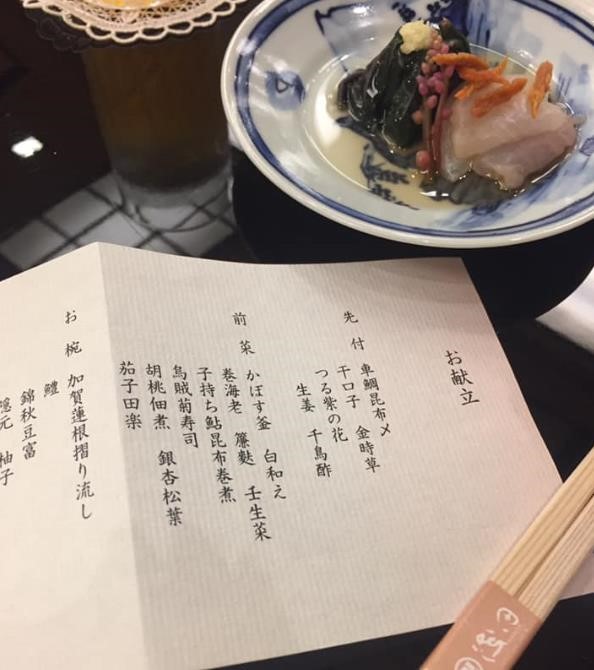 お献立
先付 車鯛昆布〆
干口子 金時草
つる紫の花
生姜 千鳥酢
前菜 かぼす釜 白和え
巻海老 簾麩 壬生菜
子持ち鮎昆布巻煮
烏賊菊寿司
胡桃佃煮 銀杏松葉
茄子田楽
お椀 加賀蓮根摺り流し
鱧
錦秋豆富
隠元 柚子